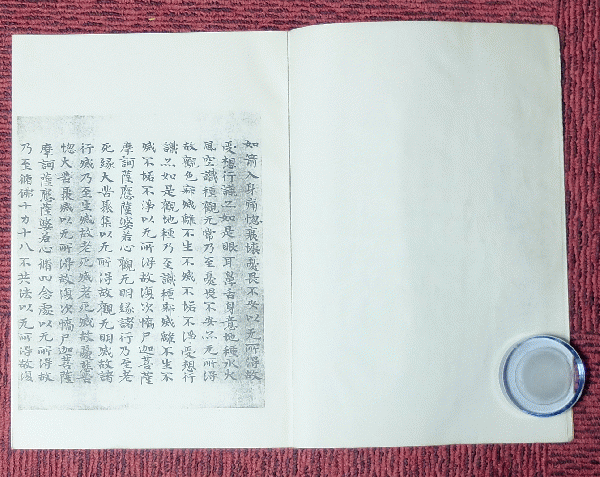 如箭入身痛惱衰壞憂畏不安以无所得故
受想行識亦如是眼耳鼻舌身意地種水火
風空識種觀无常乃至憂畏不安亦无所得
故觀色寂滅離不生不滅不垢不淨受想行
識亦如是觀地種乃至識種寂滅離不生不
滅不垢不淨以无所得故復次憍尸迦菩薩
摩訶薩應薩婆若心觀无明緣諸行乃至老
死緣大苦聚集以无所得故觀无明滅故諸
行滅乃至生滅故老死滅老死滅故憂悲苦
惱大苦聚滅以无所得故復次憍尸迦菩薩
摩訶薩應薩婆若心脩四念處以无所得故
乃至脩佛十力十八不共法以无所得故復